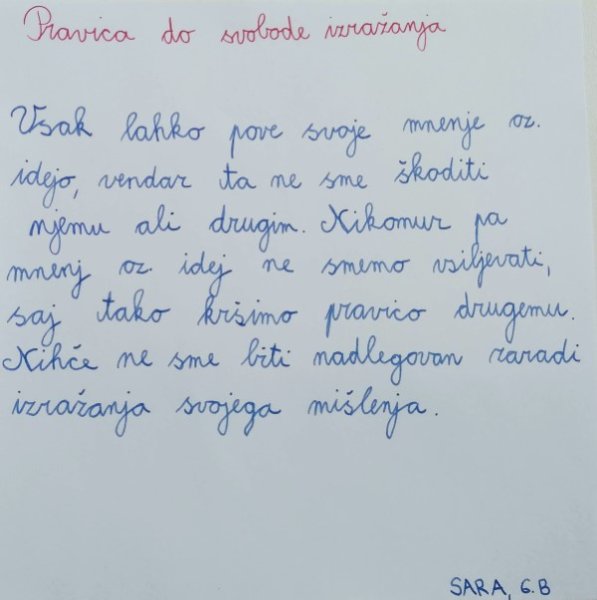 Pravica do svobode izražanja
Vsak lahko pove svoje mnenje oz.
idejo, vendar ta ne sme škoditi
njemu ali drugim. Nikomur pa
mnenj oz. idej ne smemo vsiljevati,
saj tako kršimo pravico drugemu.
Nihče ne sme biti nadlegovan zaradi
izražanja svojega mišlenja.
SARA, 6.B